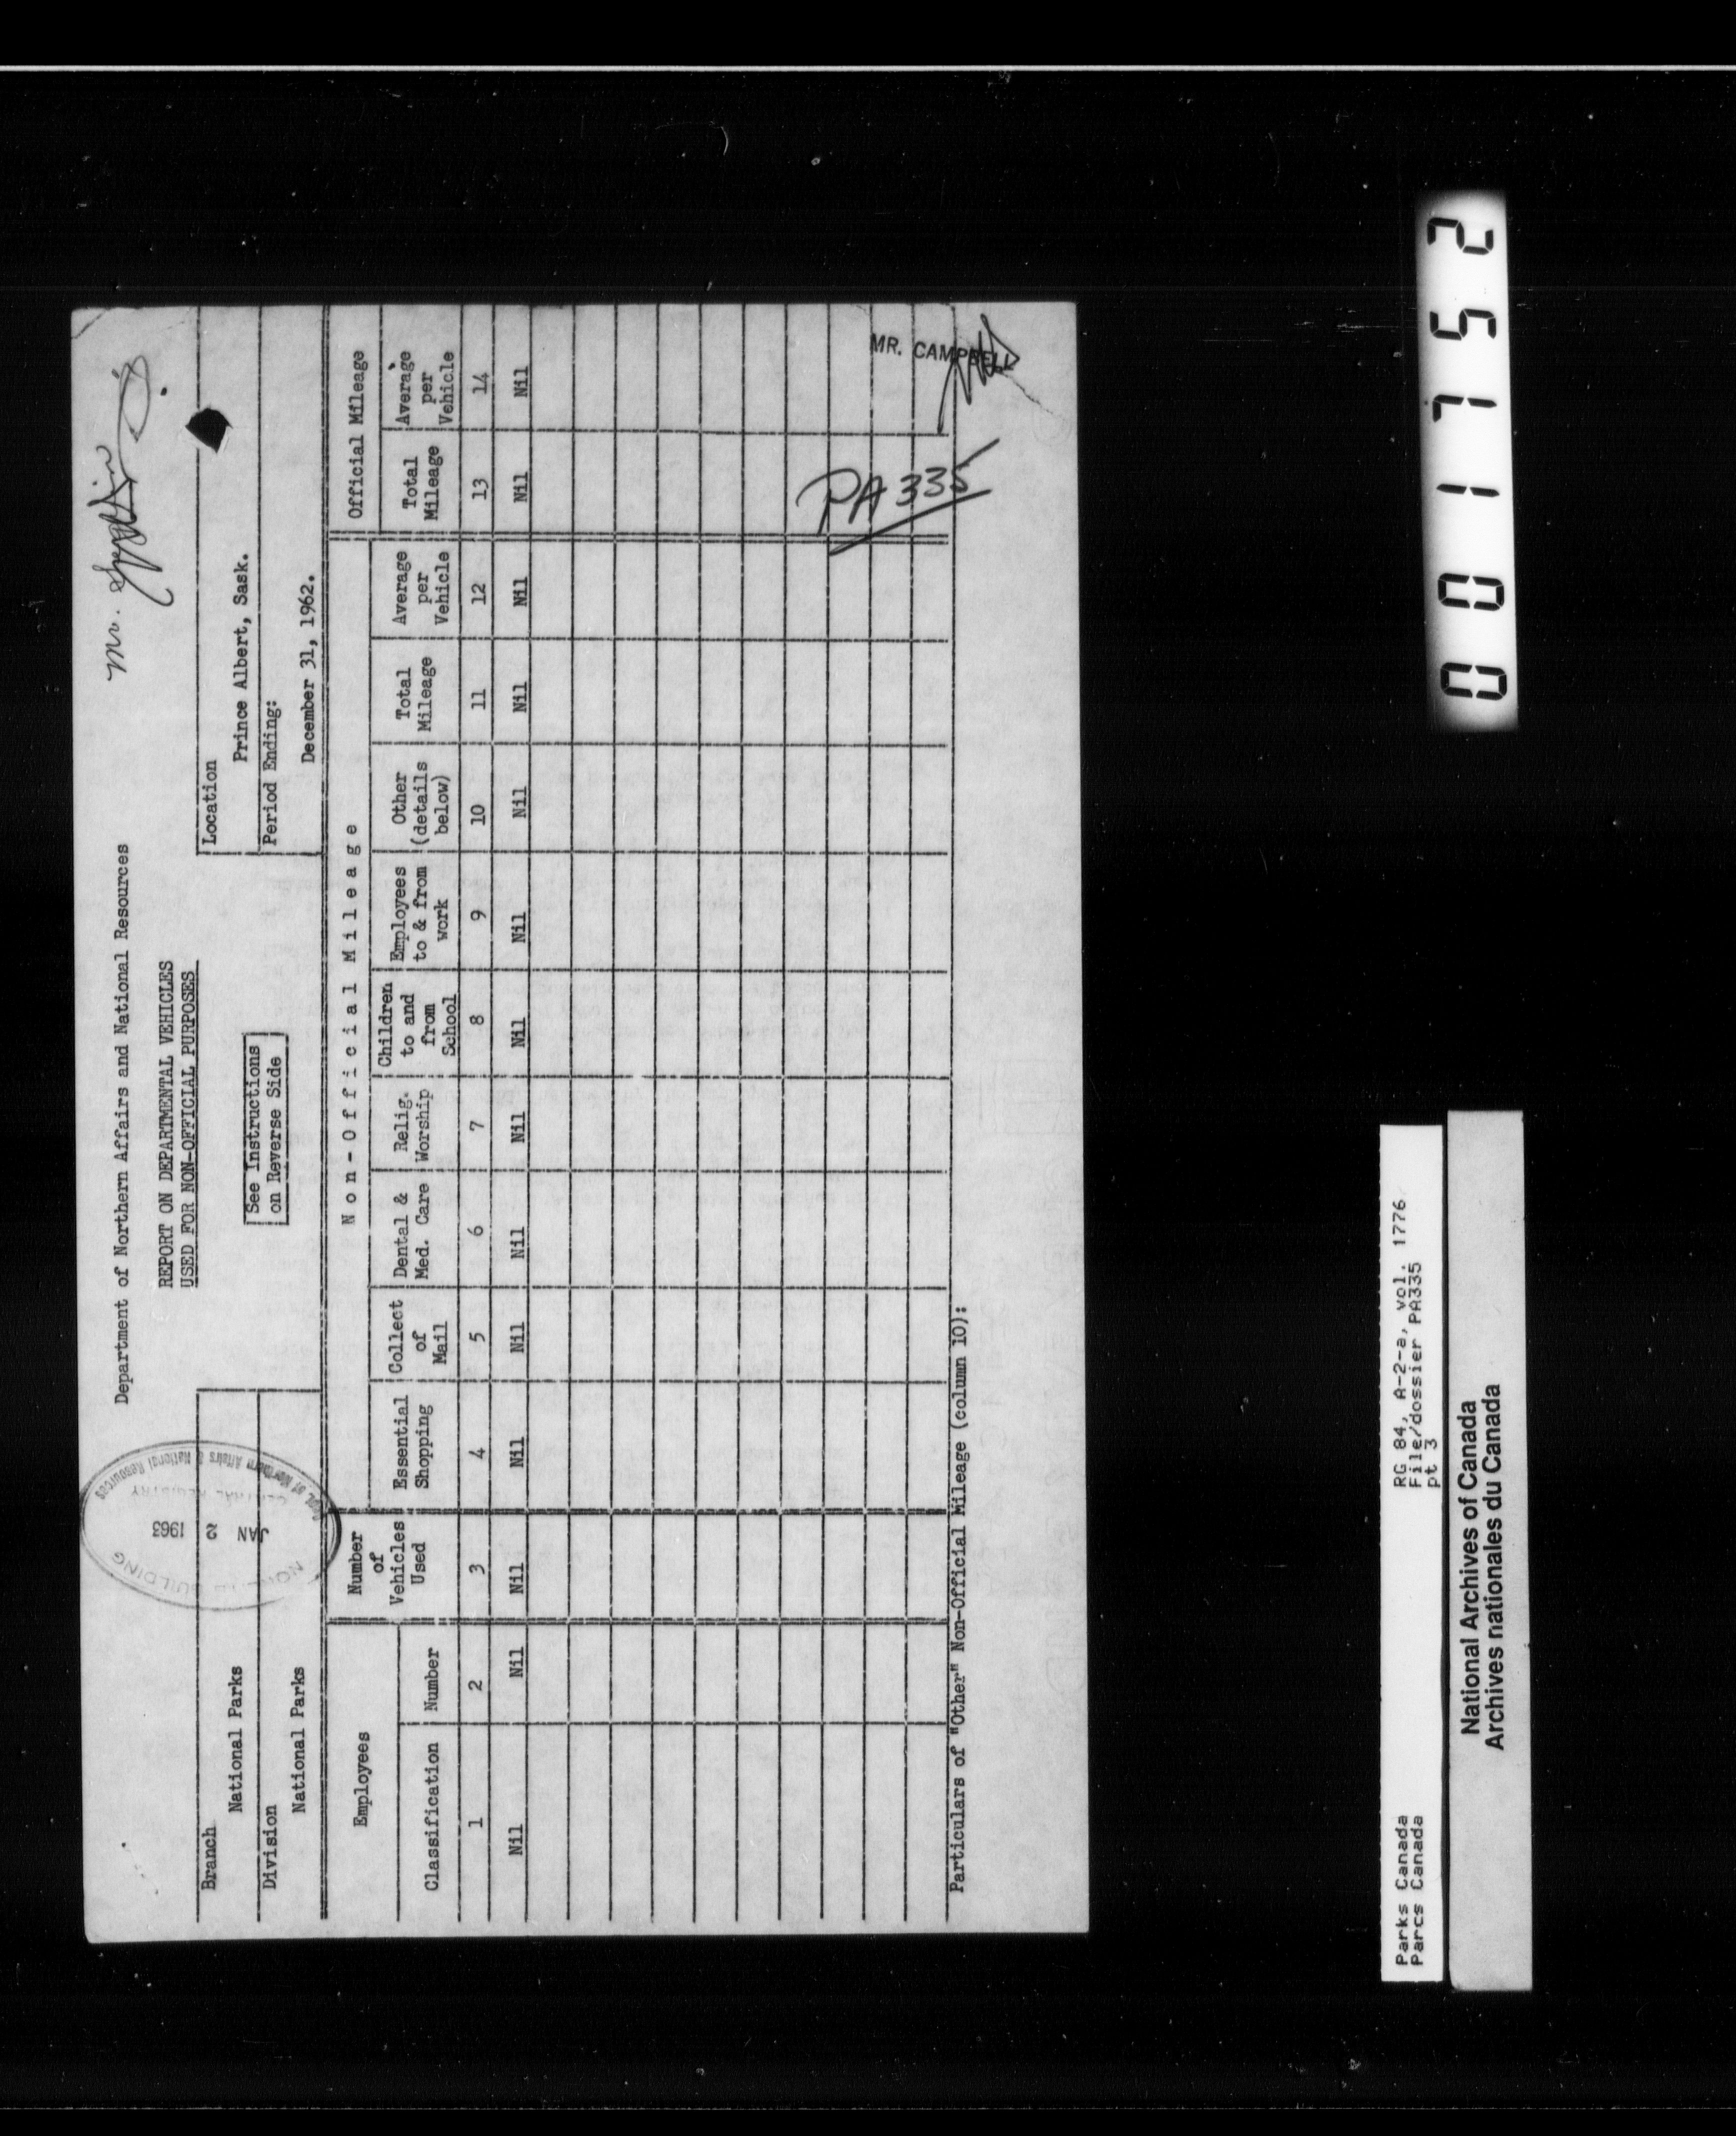 Mr.
Department of Northern Affairs and National Resources
REPORT ON DEPARTMENTAL VEHICLES
USED FOR NON-OFFICIAL PURPOSES
See Instructions
on Reverse Side
Branch
National Parks
Division
National Parks
Location
Prince Albert, Sask.
Period Ending:
December 31, 1962.
Dept. of Northern Affairs & National Resources
CENTRAL REGISTRY
JAN 2 1963
BUILDING
Employees
Number of Vehicles Used
Non-Official Mileage
Official Mileage
Classification Number Essential Shopping Collect of Mail Dental & Med. Care Relig. Worship Children to and from School Employees to & from work Other (details below) Total Mileage Average per Vehicle Total Mileage Average per Vehicle
1 2 3 4 5 6 7 8 9 10 11 12 13 14
Nil Nil Nil Nil Nil Nil Nil Nil Nil Nil Nil Nil Nil Nil
PA 335
MR. CAMPBELL
Particulars of "Other" Non-Official Mileage (column 10):
001752
Parks Canada RG 84, A-2-a, vol. 1776
Parcs Canada File/dossier PA335
pt 3
National Archives of Canada
Archives nationales du Canada